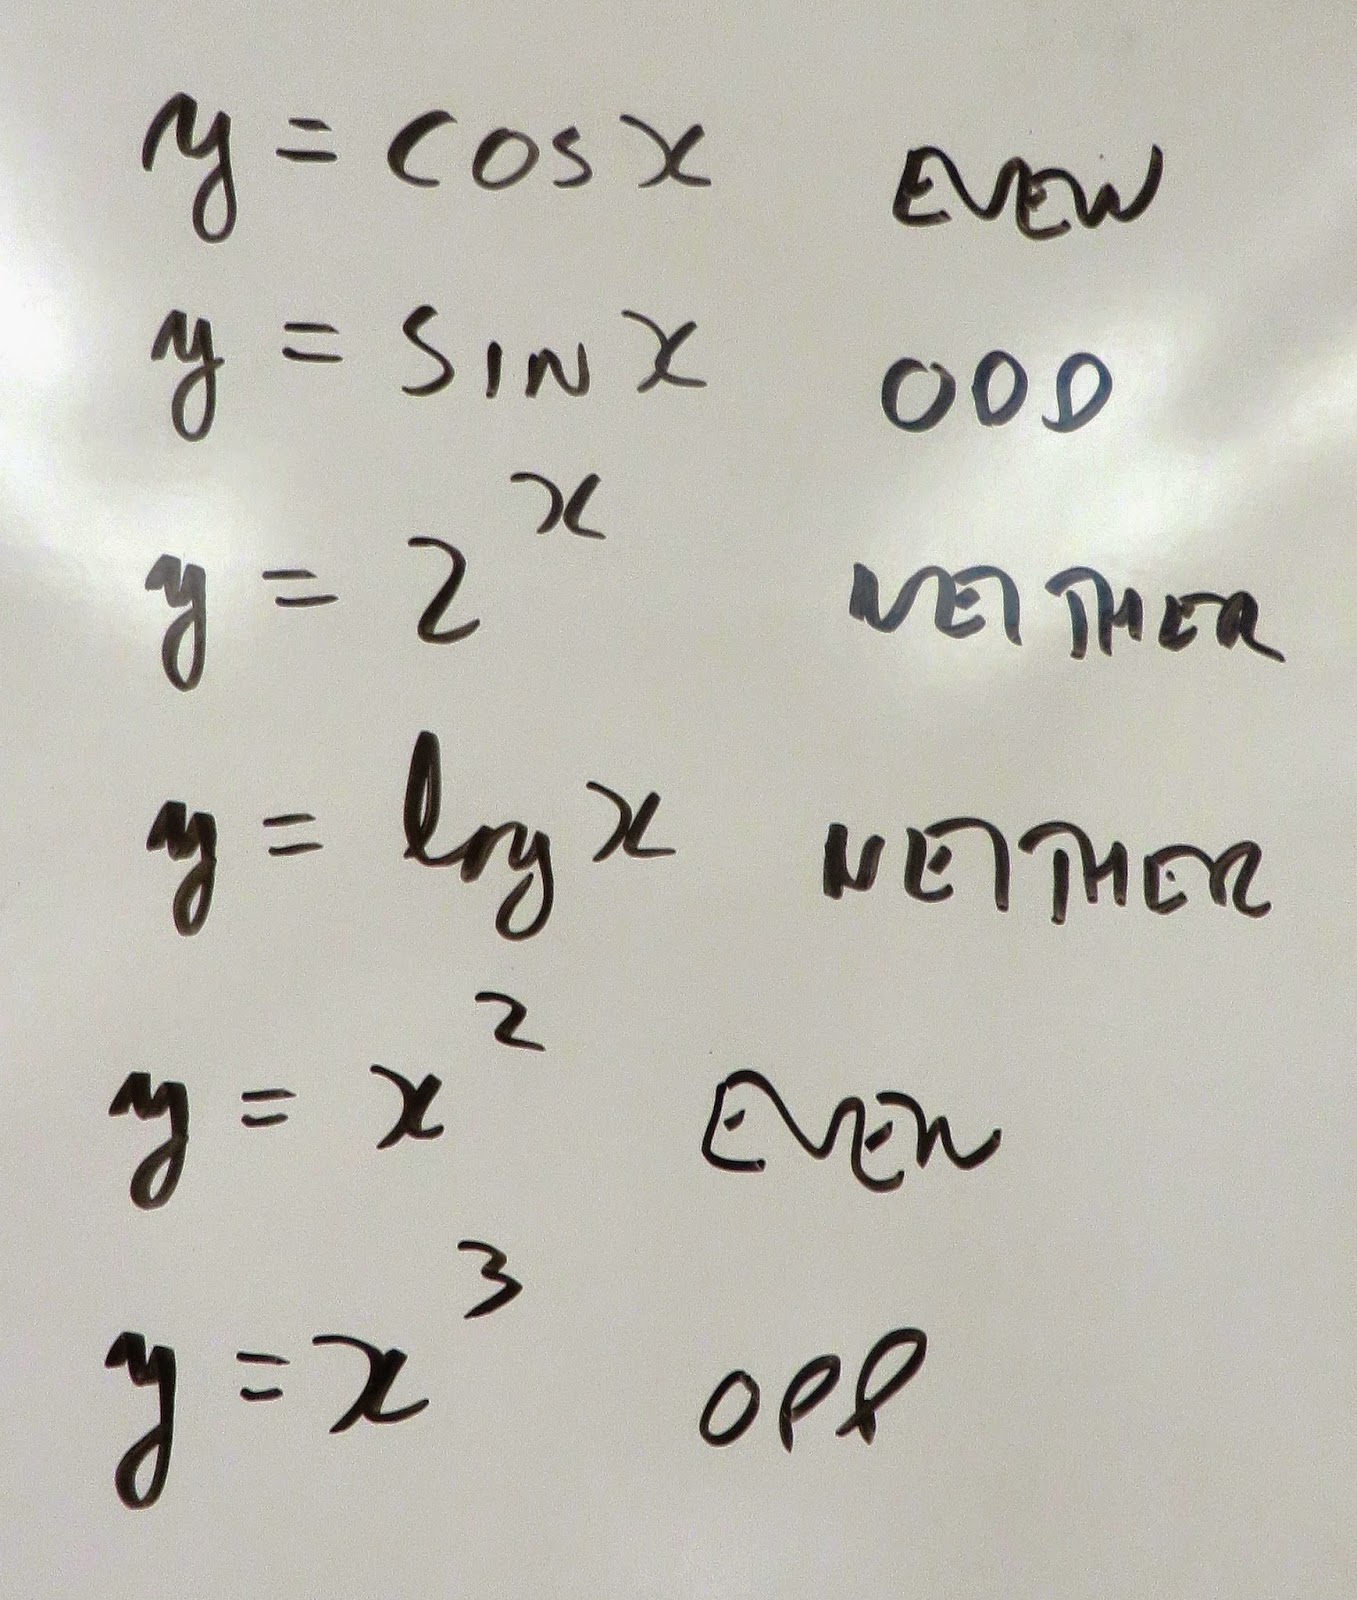 y = cos x EVEN
y = SIN x ODD
y = 2^x NEITHER
y = log x NEITHER
y = x^2 EVEN
y = x^3 OPP